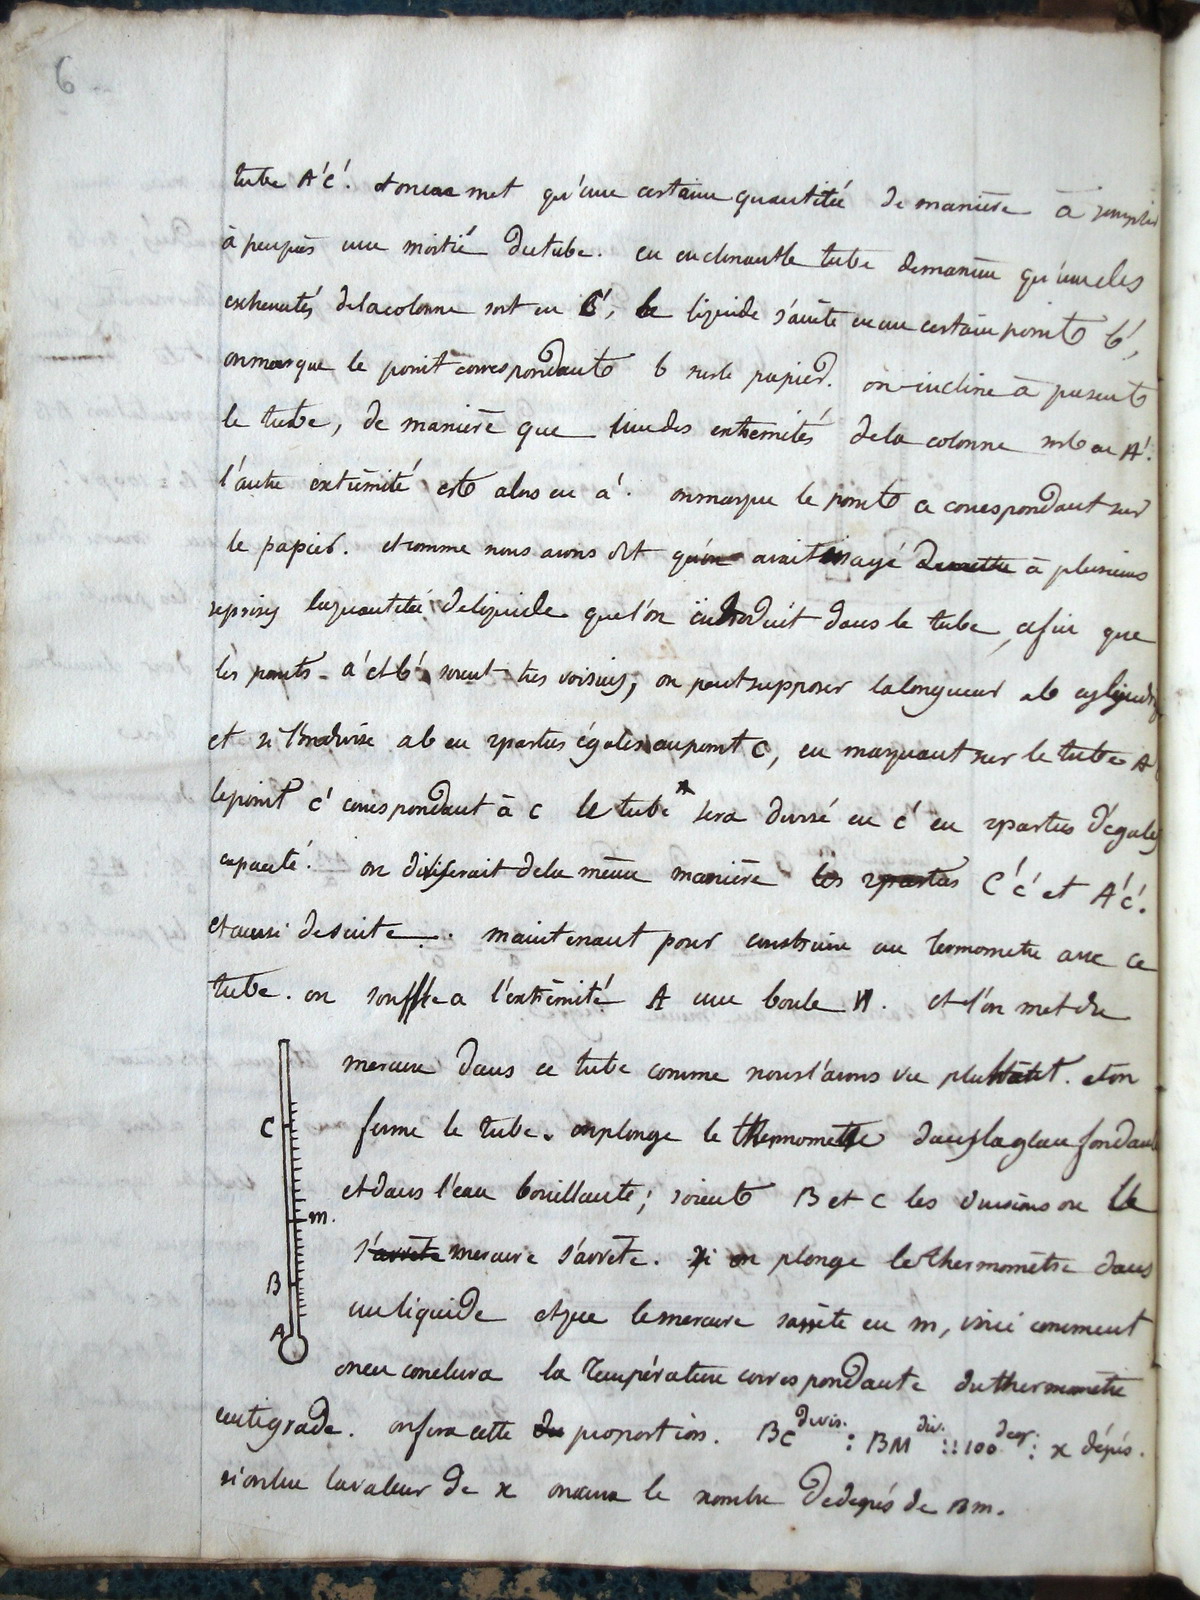 6
tube A'C'. et on n'en met qu'une certaine quantité de manière à remplir
à peuprès une moitié du tube. en inclinant le tube de manière qu'une des
extremités de la colonne soit en B', le liquide s'arrête en un certain point b',
on marque le point correspondant b sur le papier. on incline à présent
le tube, de manière que l'une des extremités de la colonne soit en A'.
l'autre extrémité est alors en a'. on marque le point a correspondant sur
le papier. et comme nous avons dit qu'on avait essayé à plusieurs
reprises la quantité de liquide que l'on introduit dans le tube, afin que
les points a' et b' soient très voisins, on peut supposer la longueur ab cylindrique
et si l'on divise ab en 2 parties égales au point C, en marquant sur le tube A
le point c' correspondant à c le tube A sera divisé en c' en 2 parties d'égales
capacité. on diviserait de la même manière les 2 parties C'c' et A'c'.
et ainsi de suite. maintenant pour construire un termometre avec ce
tube. on souffle a l'extrémité A une boule H. et l'on met du
mercure dans ce tube comme nous l'avons vu plus tôt. et on
ferme le tube. on plonge le thermometre dans la glace fondante
et dans l'eau bouillante; soient B et C les divisions ou le
s'arrête mercure s'arrête. si on plonge le thermomètre dans
un liquide et que le mercure s'arrête en m, voici comment
on en conclura la température correspondante du thermomètre
centigrade. on fera cette proportion. BC divis. : BM div. :: 100 degr. : x dégrés.
si on tire la valeur de x on aura le nombre de degrés de Bm.
C
m.
B
A